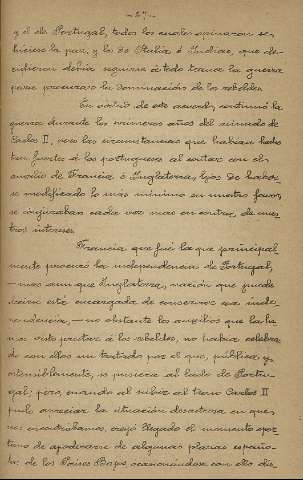 - 57 -
y el de Portugal, todos los cuales opinaron se
hiciese la paz, y los de Italia é Indias, que de-
cidieron debia seguirse á todo trance la guerra
para procurar la dominación de los rebeldes.
En virtud de este acuerdo, continuó la
guerra durante los primeros años del reinado de
Carlos II, pero las circunstancias que habian hecho
tan fuertes á los portugueses al contar con el
auxilio de Francia é Inglaterra, lejos de haber-
se modificado lo más mínimo en nuestro favor,
se conjuraban cada vez mas en contra de nues-
tros intereses.
Francia que fué la que principal-
mente procuró la independencia de Portugal,
- mas aun que Inglaterra, nación que puede
decirse está encargada de conservar esa inde-
pendencia, - no obstante los auxilios que la he-
mos visto prestar á los rebeldes, no habia celebra-
do con ellos un tratado por el que, pública y
ostensiblemente, se pusiera al lado de Portu-
gal; pero cuando al subir al trono Carlos II
pudo apreciar la situación desastrosa en que
nos encontrábamos, creyó llegado el momento opor-
tuno de apoderarse de algunas plazas españo-
las de los Paises Bajos, ocasionándose con ello dis-